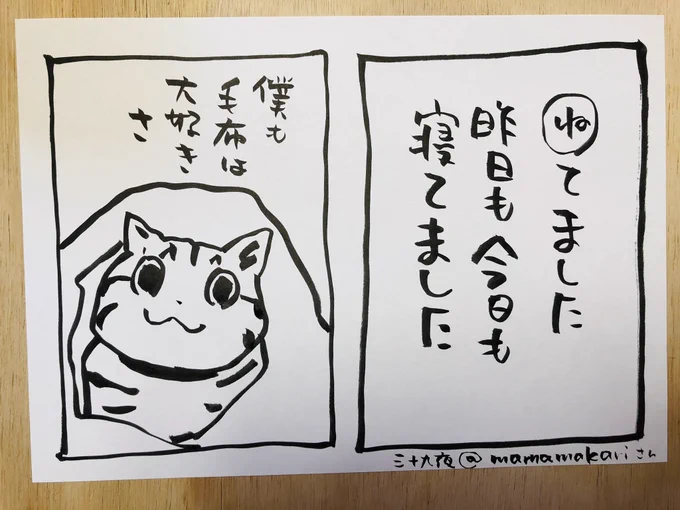 ねてました
昨日も今日も
寝てました
僕も
毛布は
大好き
さ
三十九夜@mamamakariさん